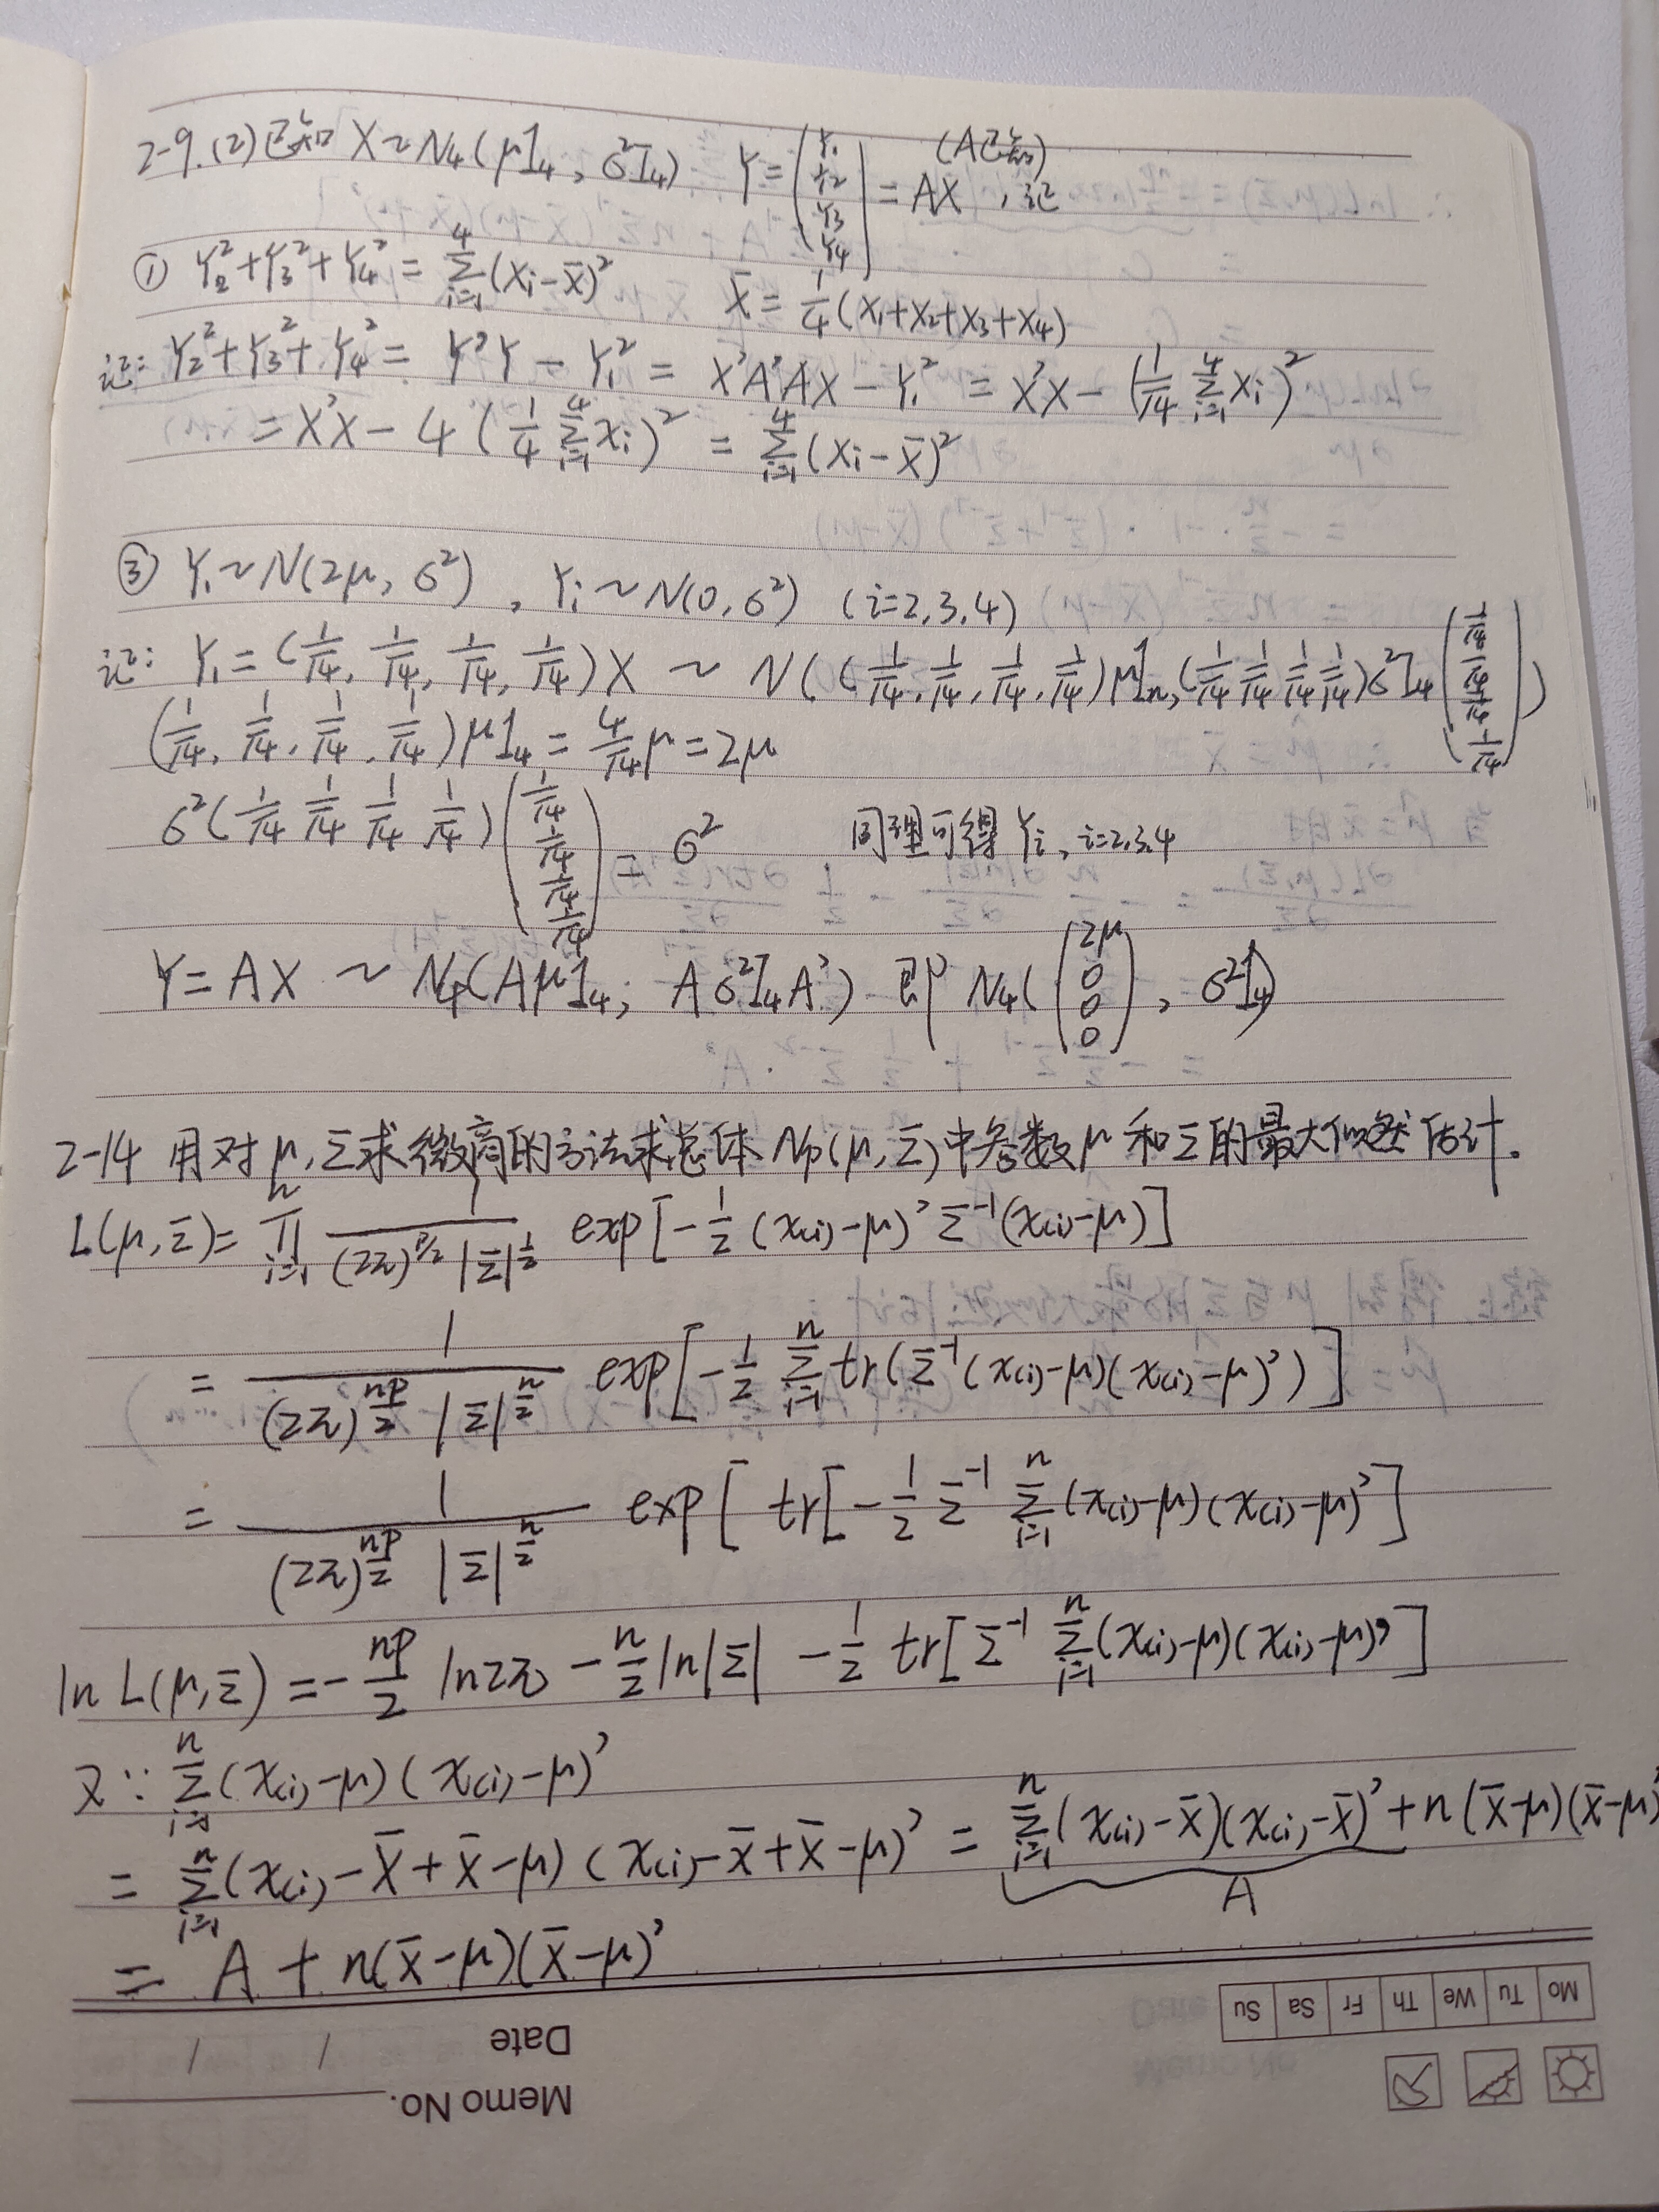 2-9.(2)已知 X~N₄(μ1₄, σ²I₄) Y=(Y₁ Y₂ Y₃ Y₄)=AX (A已知), 记
① Y₂²+Y₃²+Y₄² = Σ_{i=1}^{4}(Xi-X̄)² X̄ = 1/4(X₁+X₂+X₃+X₄)
记: Y₂²+Y₃²+Y₄² = Y'Y - Y₁² = X'A'AX - Y₁² = X'X - (1/√4 Σ_{i=1}^{4} Xi)²
= X'X - 4(1/4 Σ_{i=1}^{4} xi)² = Σ_{i=1}^{4}(Xi-X̄)²
③ Y₁~N(2μ, σ²), Yi~N(0, σ²) (i=2,3,4)
记: Y₁=(1/√4, 1/√4, 1/√4, 1/√4)X ~ N((1/√4, 1/√4, 1/√4, 1/√4)μ1n, (1/√4 1/√4 1/√4 1/√4)σ²I₄(1/√4 1/√4 1/√4 1/√4))
(1/√4, 1/√4, 1/√4, 1/√4)μ1₄ = 4/√4 μ = 2μ
σ²(1/√4 1/√4 1/√4 1/√4)(1/√4 1/√4 1/√4 1/√4) = σ² 同理可得 Yi, i=2,3,4
Y=AX ~ N₄(Aμ1₄; Aσ²I₄A') 即 N₄((2μ 0 0 0), σ²I₄)
2-14 用对μ,Σ求微商的方法求总体 Np(μ,Σ)中参数μ和Σ的最大似然估计.
L(μ,Σ)= Π_{i=1}^{n} 1/((2π)^{p/2}|Σ|^{1/2}) exp[-1/2(x(i)-μ)'Σ⁻¹(x(i)-μ)]
= 1/((2π)^{np/2}|Σ|^{n/2}) exp[-1/2 Σ_{i=1}^{n} tr(Σ⁻¹(x(i)-μ)(x(i)-μ)')]
= 1/((2π)^{np/2}|Σ|^{n/2}) exp[tr[-1/2 Σ⁻¹ Σ_{i=1}^{n}(x(i)-μ)(x(i)-μ)']
ln L(μ,Σ) = -np/2 ln2π - n/2 ln|Σ| - 1/2 tr[Σ⁻¹ Σ_{i=1}^{n}(x(i)-μ)(x(i)-μ)']
又∵ Σ_{i=1}^{n}(x(i)-μ)(x(i)-μ)'
= Σ_{i=1}^{n}(x(i)-X̄+X̄-μ)(x(i)-X̄+X̄-μ)' = Σ_{i=1}^{n}(x(i)-X̄)(x(i)-X̄)'+n(X̄-μ)(X̄-μ)'
A
= A+n(X̄-μ)(X̄-μ)'
Mo Tu We Th Fr Sa Su
Date / /
Memo No.